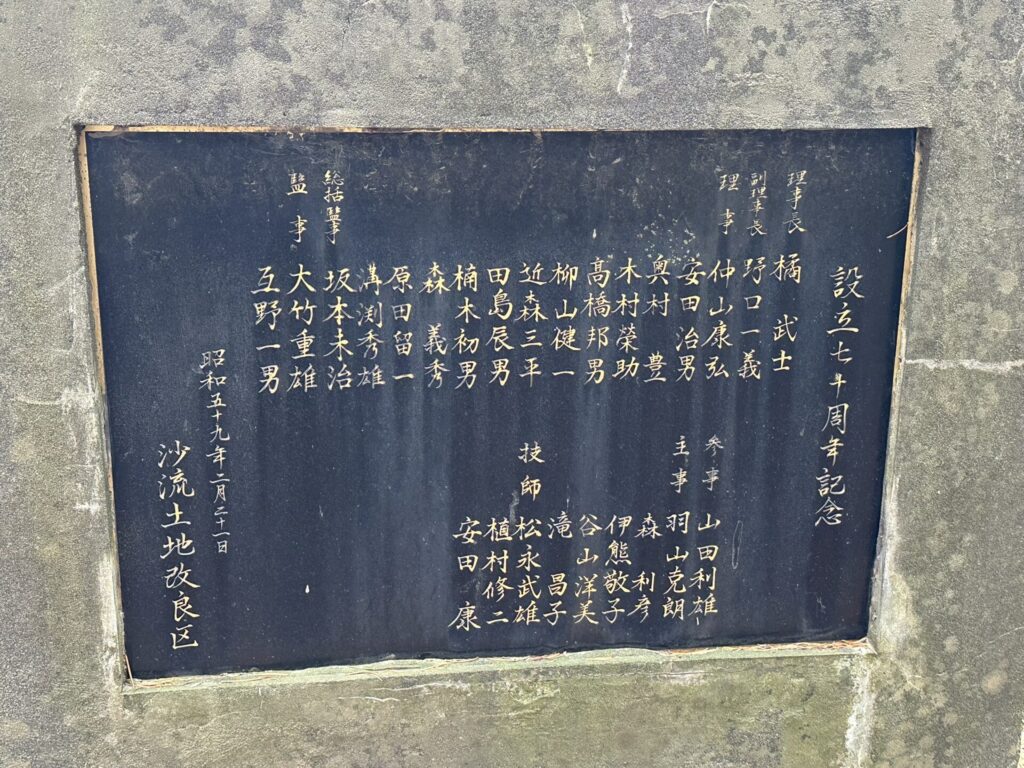 設立七十周年記念
理事長 橘 武士
副理事長 野口一義
理事 仲山康弘
安田治男
奥村 豊
木村榮助
髙橋邦男
柳山健一
近森三平
田島辰男
楠木初男
森 義秀
原田留一
溝渕秀雄
総括監事 坂本未治
監事 大竹重雄
互野一男
参事 山田利雄
主事 羽山克朗
森 利彦
伊熊敬子
谷山洋美
滝 昌子
技師 松永武雄
植村修二
安田 康
昭和五十九年二月二十一日
沙流土地改良区